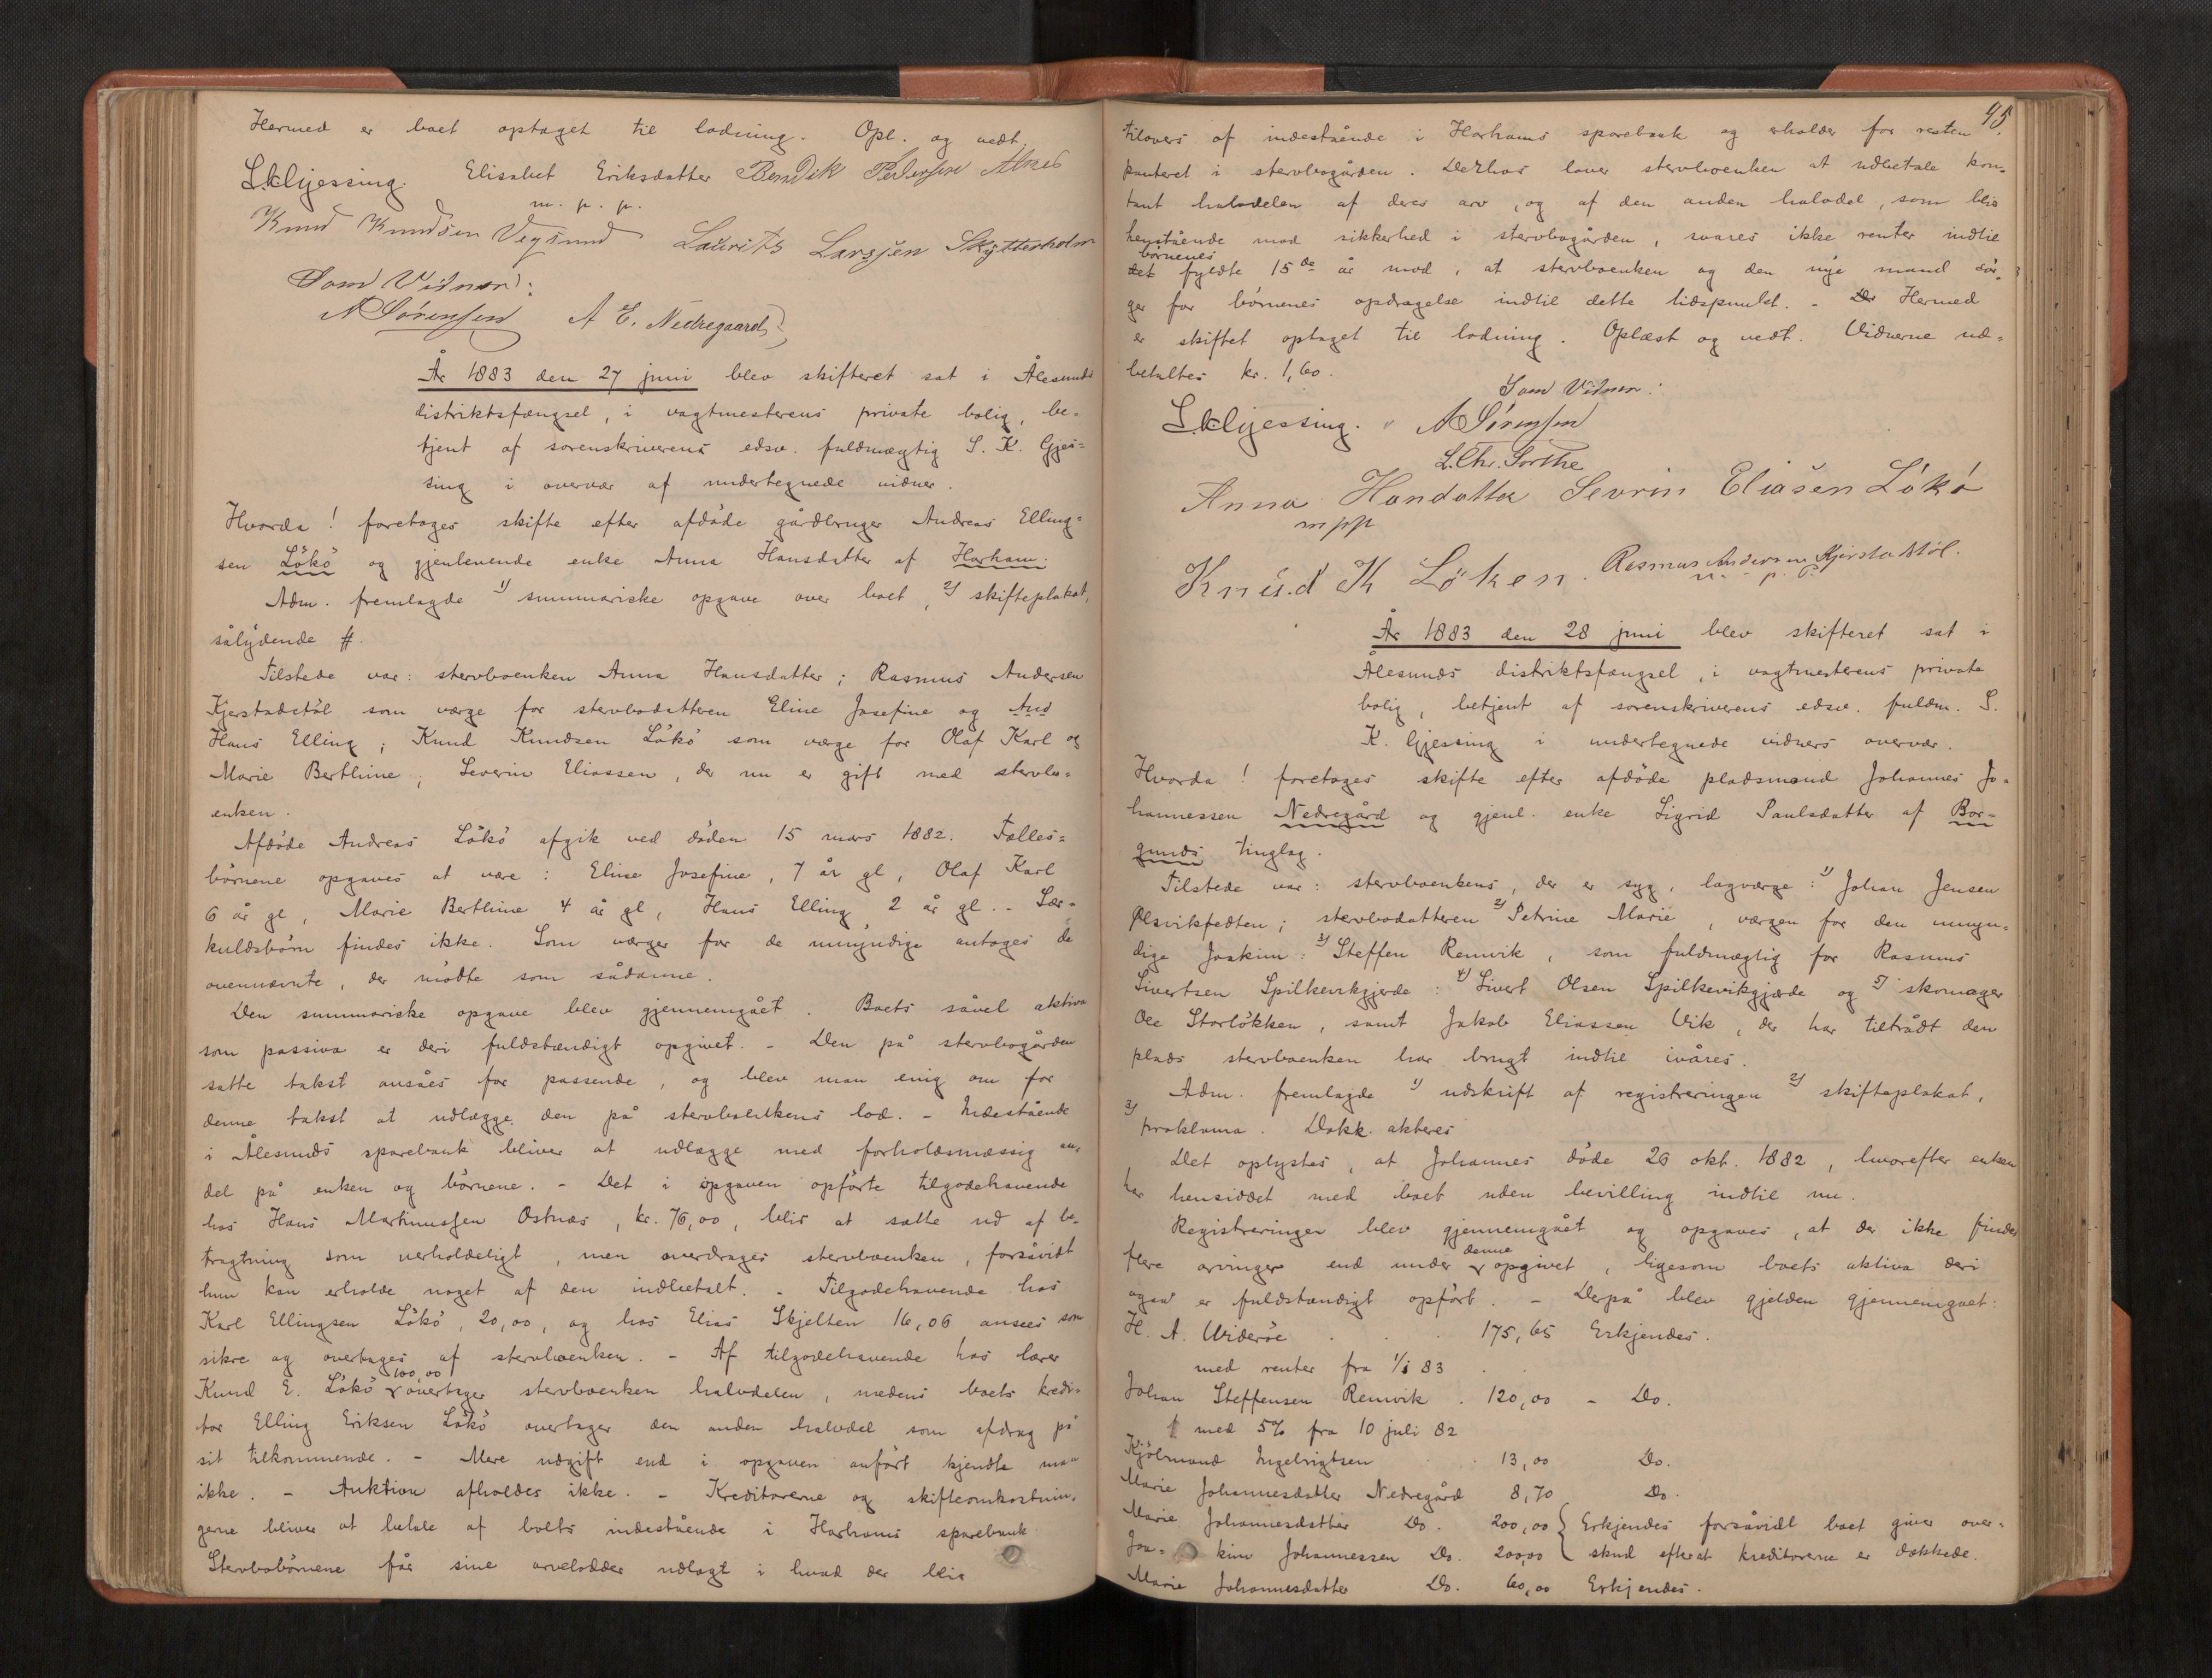 Hermed er boet optaget til lodning. Opl. og vedt.
S.K. Gjessing. Elisabet Eriksdatter Bendik Pedersen Alnes
m. p. p.
Knud Knudsen Vegsund Laurits Larssen Skytterholm
Som Vidner:
A Sørensen A E. Nedregaard
År 1883 den 27 juni blev skifteret sat i Ålesunds
distriktsfængsel, i vagtmesterens private bolig, be-
tjent af sorenskriverens edsv. fuldmægtig S. K. Gjes-
sing i overvær af undertegnede vidner.
Hvorda! foretages skifte efter afdöde gårdbruger Andreas Elling-
sen Lökö og gjenlevende enke Anna Hansdatter af Harham.
Adm. fremlagde 1) summariske opgave over boet, 2) skifteplakat,
sålydende #.
Tilstede var: stervboenken Anna Hansdatter; Rasmus Andersen
Kjerstadstöl som værge for stervbodatteren Eline Josefine og And
Hans Elling; Knud Knudsen Lökö som værge for Olaf Karl og
Marie Berthine; Severin Eliassen, der nu er gift med stervbo-
enken.
Afdöde Andreas Lökö afgik ved döden 15 mars 1882. Fælles-
börnene opgaves at være: Eline Josefine, 7 år gl, Olaf Karl
6 år gl, Marie Berthine 4 år gl, Hans Elling 2 år gl. - Sær-
kuldsbörn findes ikke. Som værger for de umyndige antoges de
ovennævnte, der mödte som sådanne.
Den summariske opgave blev gjennemgået. Boets såvel aktiva
som passiva er deri fuldstændigt opgivet. - Den på stervbogården
satte takst ansåes for passende, og blev man enig om for
denne takst at udlægge den på stervboenkens lod. - Indestående
i Ålesunds sparebank bliver at udlægge med forholdsmæssig an-
del på enken og börnene. - Det i opgaven opförte tilgodehavende
hos Hans Martinussen Ostnæs, kr. 76,00, blir at sætte ud af be-
tragtning som uerholdeligt, men overdrages stervboenken, forsåvidt
hun kan erholde noget af den indbetalt. - Tilgodehavende hos
Karl Ellingsen Lökö, 20,00, og hos Elias Skjelten 16,06 ansees som
sikre og overtages af stervboenken. - Af tilgodehavende hos lærer
Knud E. Lökö 100,00 overtager stervboenken halvdelen, medens boets kredi-
tor Elling Eriksen Lökö overtager den anden halvdel som afdrag på
sit tilkommende. - Mere udgift end i opgaven anfört kjendte man
ikke. - Auktion afholdes ikke. - Kreditorerne og skifteomkostnin-
gerne bliver at betale af boets indestående i Harhams sparebank
Stervbobörnene får sine arvelodder udlagt i hvad der blir
95.
tilovers af indestående i Harhams sparebank og erholder for resten
panteret i stervbogården. Derhos lover stervboenken at udbetale kon-
tant halvdelen af deres arv, og af den anden halvdel, som blir
henstående mod sikkerhed i stervbogården, svares ikke renter indtil
börnenes
det fyldte 15de år mod, at stervboenken og den nye mand sör-
ger for börnenes opdragelse indtil dette tidspunkt. - De Hermed
er skiftet optaget til lodning. Oplæst og vedt. Vidnerne ud-
betaltes kr. 1,60.
Som Vidner:
S.K. Gjessing. A Sørensen
L. Chr. Sorthe
Anna Handatter Sevrin Eliasen Lökö
mpp
Knud K Löken. Rasmus Andersen Kjerstadstöl.
m. p. p.
År 1883 den 28 juni blev skifteret sat i
Ålesunds distriktsfængsel, i vagtmesterens private
bolig, betjent af sorenskriverens edsv. fuldm. S.
K. Gjessing i undertegnede vidners overvær.
Hvorda! foretages skifte efter afdöde pladsmand Johannes Jo-
hannessen Nedregård og gjenl. enke Sigrid Paulsdatter af Bor-
gunds tinglag.
Tilstede var: stervboenkens, der er syg, lagværge: 1) Johan Jensen
Åsvikfedten; stervbodatteren 2) Petrine Marie, værgen for den umyn-
dige Joakim: 3) Steffen Remvik, som fuldmægtig for Rasmus
Sivertsen Spilkevikgjerde: 4) Sivert Olsen Spilkevikgjærde og 5) skomager
Ole Storlökken, samt Jakob Eliassen Vik, der har tiltrådt den
plads stervboenken har brugt indtil ivåres.
Adm. fremlagde 1) udskrift af registreringen 2) skifteplakat,
3) proklama. Dokk. akteres
Det oplystes, at Johannes döde 26 okt. 1882, hvorefter enken
har hensiddet med boet uden bevilling indtil nu.
Registreringen blev gjennemgået og opgaves, at der ikke findes
flere arvinger end under denne opgivet, ligesom boets aktiva deri
også er fuldstændigt opfört. - Derpå blev gjelden gjennemgået:
H. A. Wideröe . . . 175,65 Erkjendes.
med renter fra 1/1 83
Johan Steffensen Remvik . 120,00 - Do.
med 5% fra 10 juli 82
Kjölmand Ingebrigtsen . 13,00 Do.
Marie Johannesdatter Nedregård 8,70 Do.
Marie Johannesdatter Do. 200,00 { Erkjendes forsåvidt boet giver over-
Joa- kim Johannessen Do. 200,00 { skud efterat kreditorerne er dækkede.
Marie Johannesdatter Do. 60,00 Erkjendes.